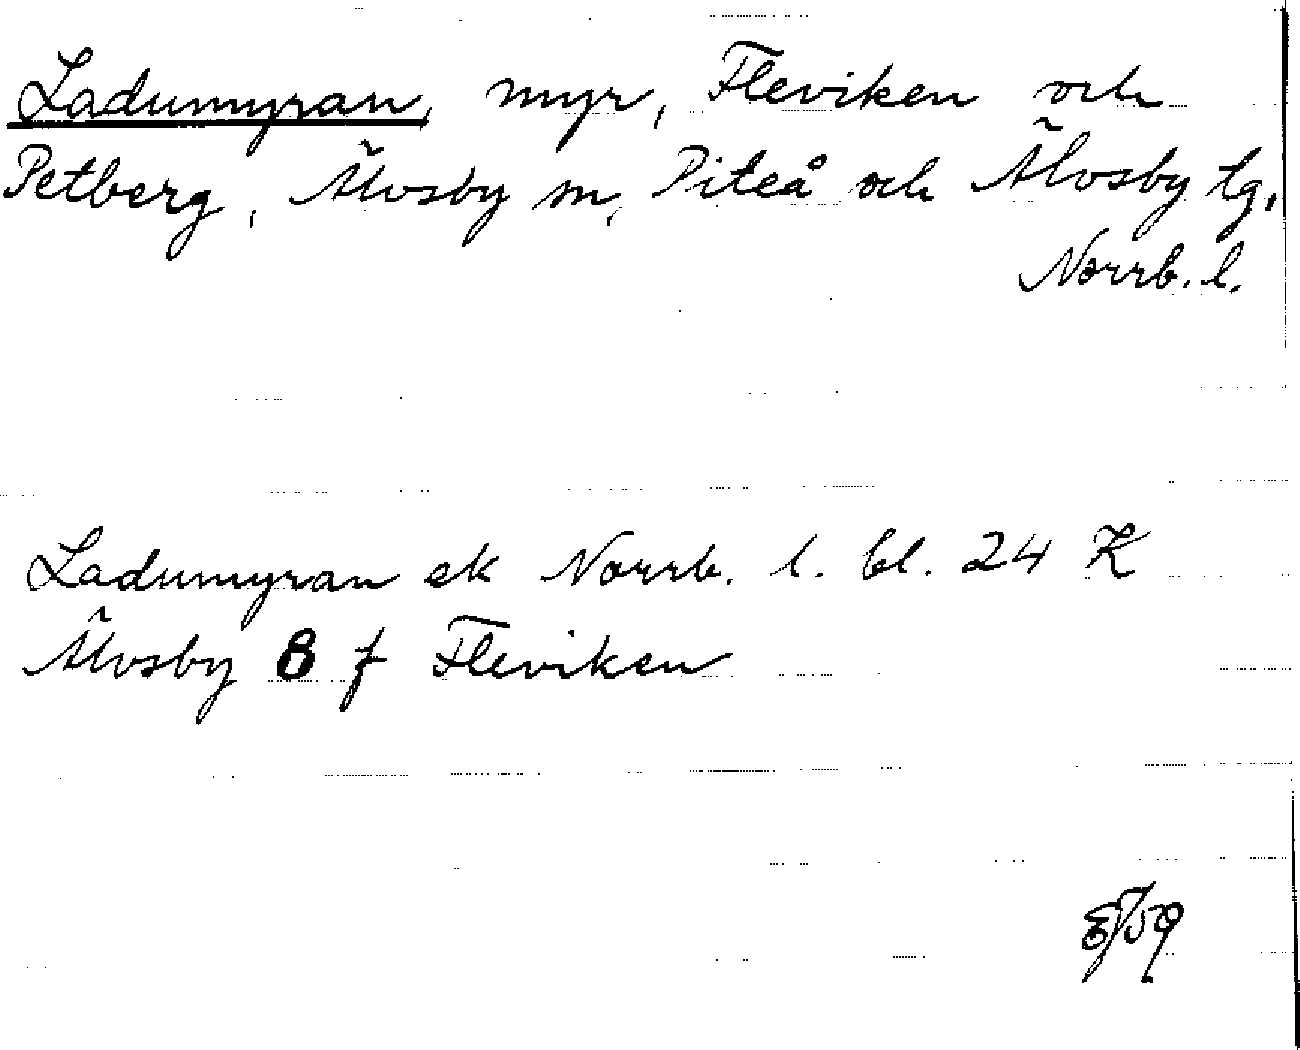 Ladumyran, myr, Fleviken och
Petberg, Älvsby sn, Piteå och Älvsby tg,
Norrb. l.
Ladumyran ek Norrb. l. bl. 24 K
Älvsby 8 f Fleviken